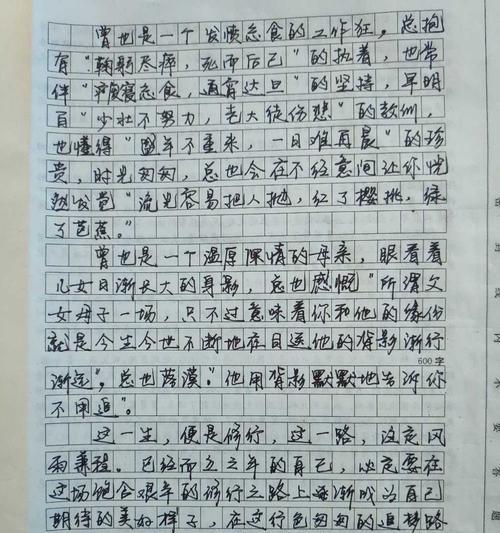 曾也是一个发愤忘食的工作狂，总抱
有“鞠躬尽瘁，死而后已”的执着，也常
伴“废寝忘食，通宵达旦”的坚持，早明
盲“少壮不努力，老大徒伤悲”的教训，
也懂得“盛年不重来，一日难再晨”的珍
贵，时光匆匆，总也会在不经意间让你恍
然发觉“流光容易把人抛，红了樱桃，绿
了芭蕉。”
曾也是一个温厚深情的母亲，眼看着
儿女日渐长大的身影，总也感慨“所谓父
女母子一场，只不过意味着你和他的缘份
就是今生今世不断地在目送他的背影渐行
600字
渐远”，总也落漠“他用背影默默地告诉你
不用追”。
这一生，便是修行，这一路，注定风
雨兼程。已经而立之年的自己，必定要在
这场饱含艰辛的修行之路上逐渐成为自己
期待的美好样子，在这行色匆匆的追梦路